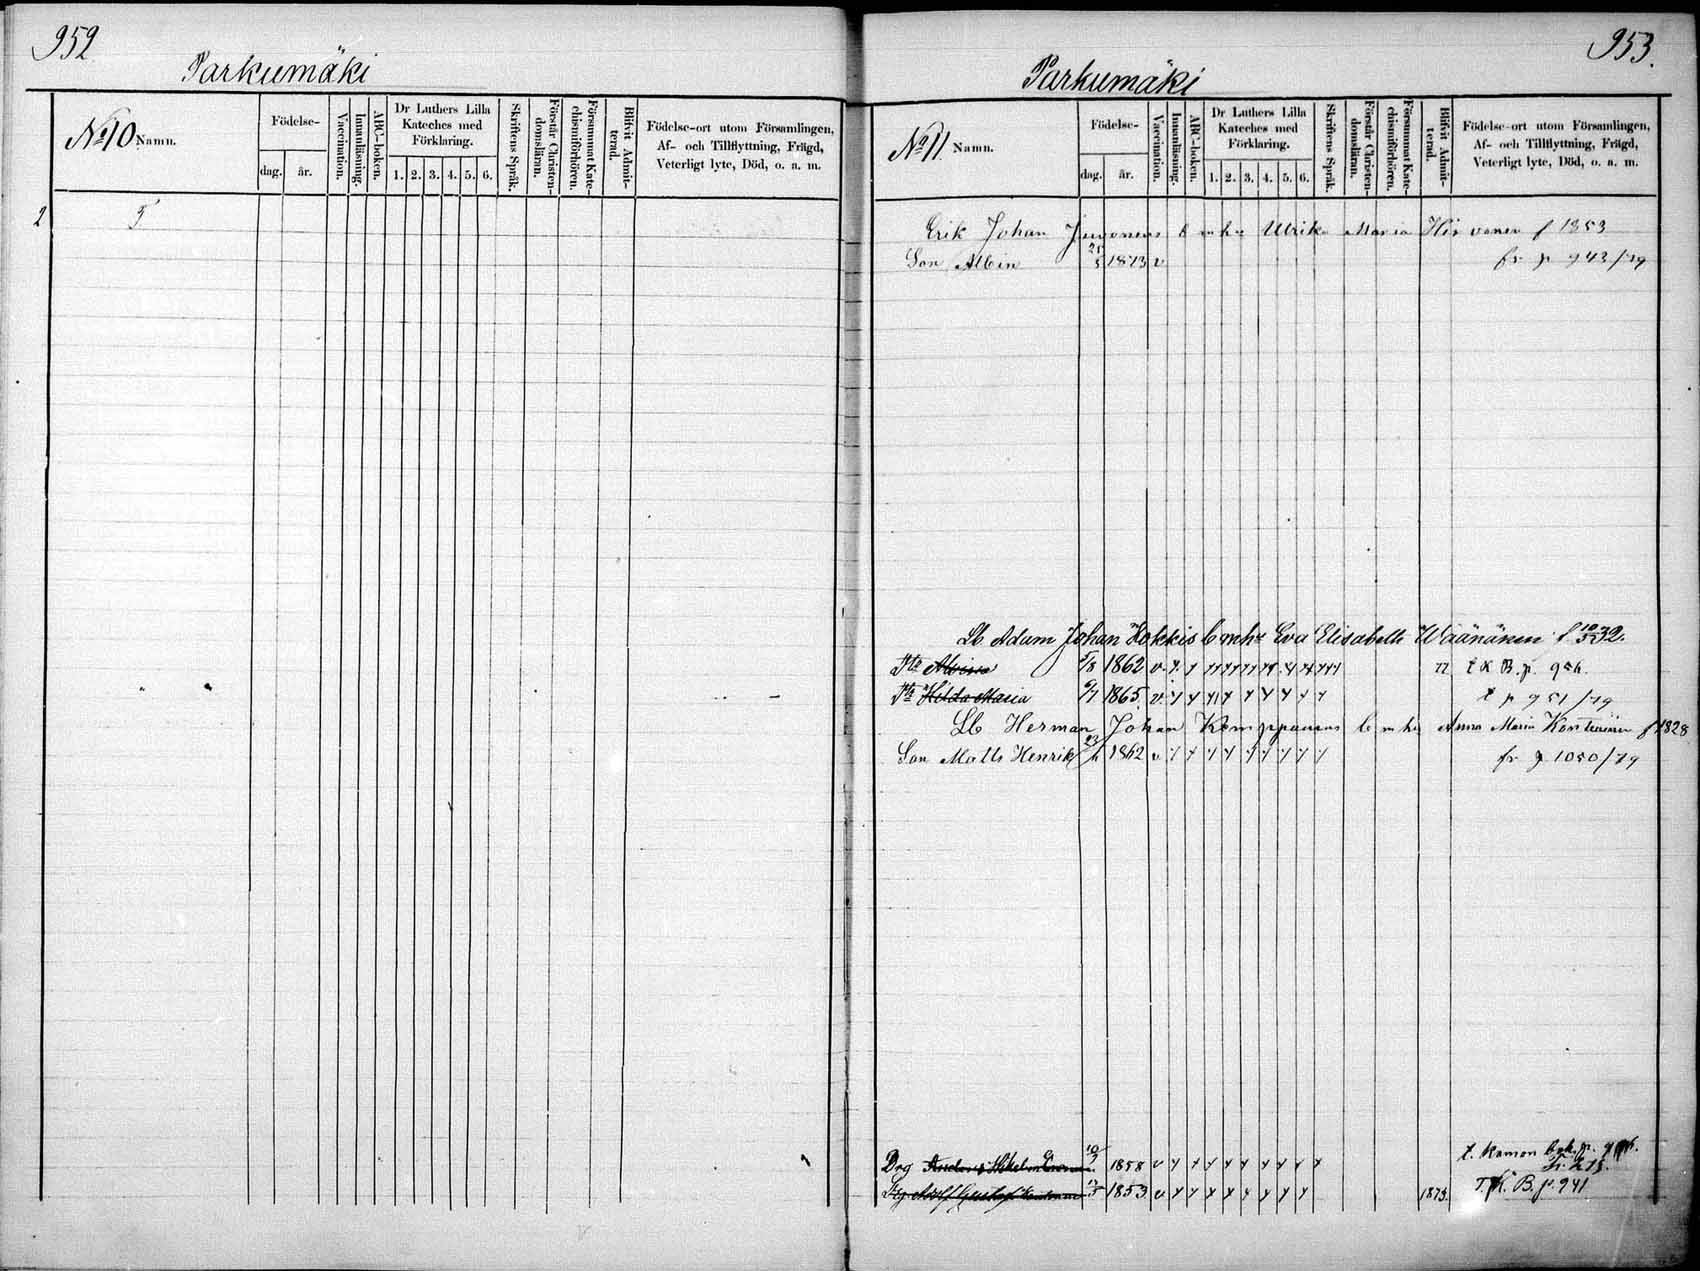 952
Parkumäki
No 10 Namn.
Födelse-
dag. år.
Vaccination.
Innanläsning.
ABC-boken.
Dr Luthers Lilla Kateches med Förklaring.
1. 2. 3. 4. 5. 6.
Skriftens Språk.
Förstår Christendomsläran.
Försummat Katechismiförhören.
Blifvit Admitterad.
Födelse-ort utom Församlingen,
Af- och Tillflyttning, Frägd,
Veterligt lyte, Död, o. a. m.
2
953.
Parkumäki
No 11. Namn.
Födelse-
dag. år.
Vaccination.
Innanläsning.
ABC-boken.
Dr Luthers Lilla Kateches med Förklaring.
1. 2. 3. 4. 5. 6.
Skriftens Språk.
Förstår Christendomsläran.
Försummat Katechismiförhören.
Blifvit Admitterad.
Födelse-ort utom Församlingen,
Af- och Tillflyttning, Frägd,
Veterligt lyte, Död, o. a. m.
Erik Johan Juvonens b m hu Ulrika Maria Hirvonen f 1853
Son Albin 25/5 1873 v fr p 943/79
Lb Adam Johan Kokkis b m hu Eva Elisabeth Wäänänen f 10/5 32.
Dtr 5/8 1862 v 77 t K B. p.
Dtr Hilda Maria 6/7 1865 v t p 951/79
Lb Herman Johan Kemppainens b m hu Anna Maria f 1828
Son Matts Henrik 1862 v fr p 1050/79
Drg 1858 v t. Ramon bok. p.
Drg Adolf Gustaf 1853. v 1873. T. K. B. p. 941